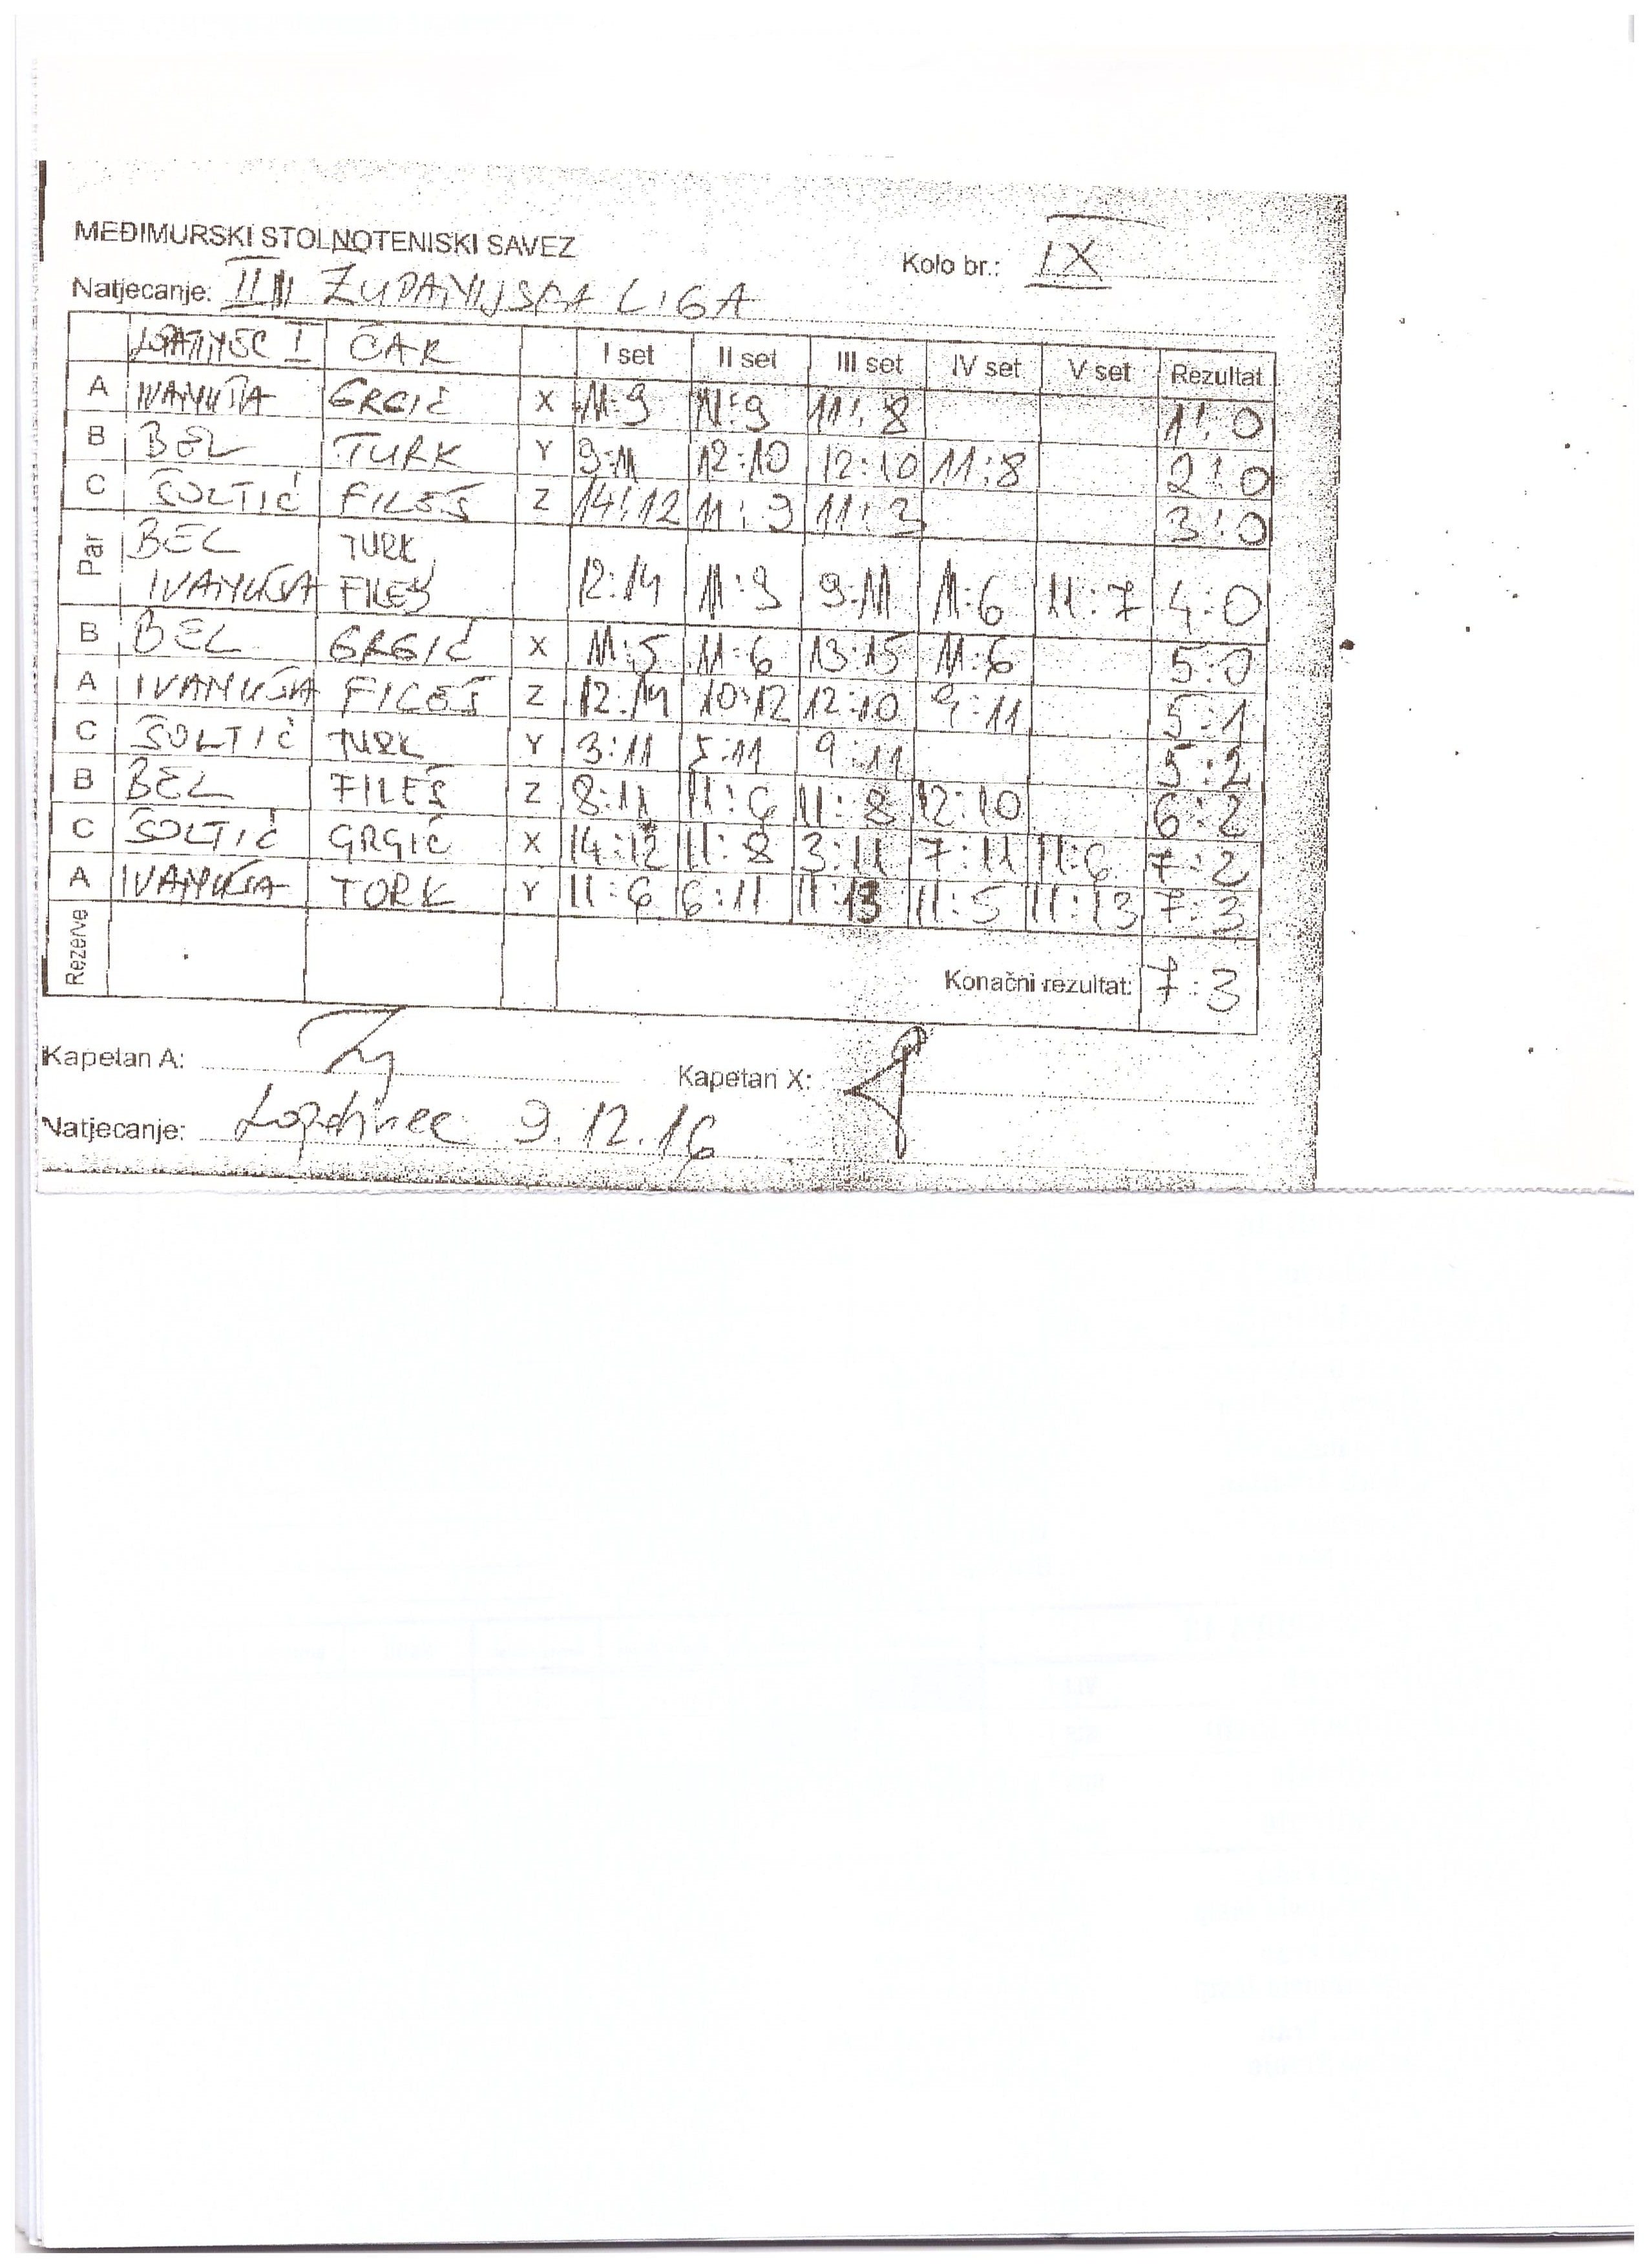 MEĐIMURSKI STOLNOTENISKI SAVEZ
Kolo br.: IX
Natjecanje: ŽUPANIJSKA LIGA
I ČAR I set II set III set IV set V set Rezultat
A IVANUŠA GRGIĆ X 11:9 11:9 11:8 1:0
B BEL TURK Y 9:11 12:10 12:10 11:8 2:0
C ŠOLTIĆ FILEŠ Z 14:12 11:9 11:3 3:0
Par BEL TURK
IVANUŠA FILEŠ 12:14 11:9 9:11 11:6 11:7 4:0
B BEL GRGIĆ X 11:5 11:6 13:15 11:6 5:0
A IVANUŠA FILEŠ Z 12:14 10:12 12:10 9:11 5:1
C ŠOLTIĆ TURK Y 3:11 5:11 9:11 5:2
B BEL FILEŠ Z 8:11 11:6 11:8 12:10 6:2
C ŠOLTIĆ GRGIĆ X 14:12 11:8 3:11 7:11 11:6 7:2
A IVANUŠA TORK Y 11:6 6:11 11:13 11:5 11:13 7:3
Rezerve Konačni rezultat: 7:3
Kapetan A:
Kapetan X:
Natjecanje: Lopatinec 9.12.16